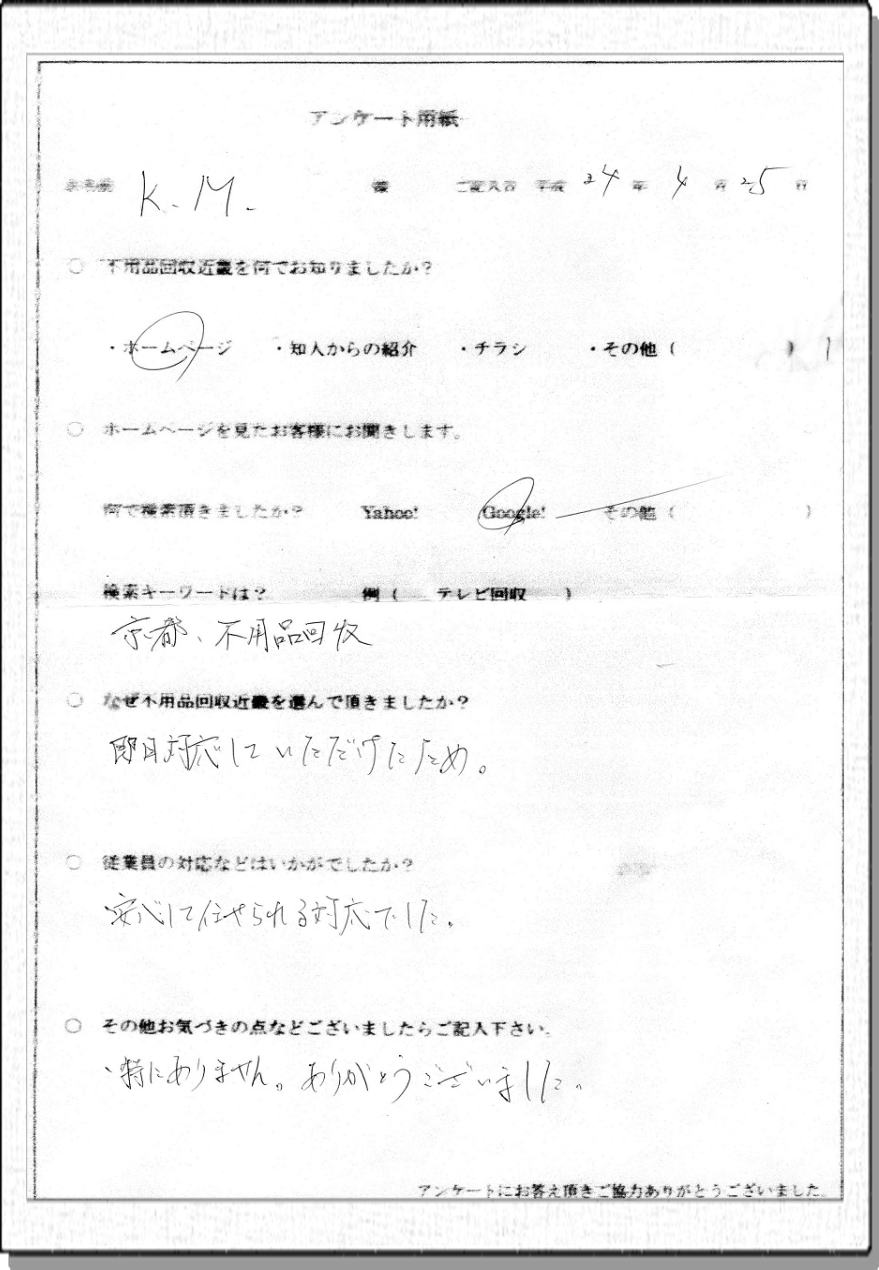 アンケート用紙
お名前 K.M. 様 ご記入日 平成 24 年 4 月 25 日
○ 不用品回収近畿を何でお知りましたか?
・ホームページ ・知人からの紹介 ・チラシ ・その他 ( )
○ ホームページを見たお客様にお聞きします。
何で検索頂きましたか? Yahoo! Google! その他 ( )
検索キーワードは? 例 ( テレビ回収 )
京都、不用品回収
○ なぜ不用品回収近畿を選んで頂きましたか?
即日対応していただけたため。
○ 従業員の対応などはいかがでしたか?
安心して任せられる対応でした。
○ その他お気づきの点などございましたらご記入下さい。
・特にありません。ありがとうございました。
アンケートにお答え頂きご協力ありがとうございました。